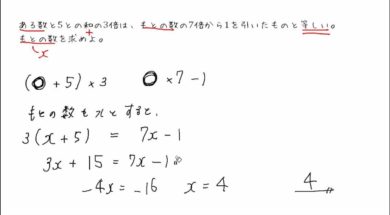 ある数と5との和の3倍は、もとの数の7倍から1を引いたものと等しい。
もとの数を求めよ。
+
x
(○ + 5) × 3 ○ × 7 - 1
もとの数をxとすると、
3(x + 5) = 7x - 1
3x + 15 = 7x - 1
-4x = -16 x = 4 4